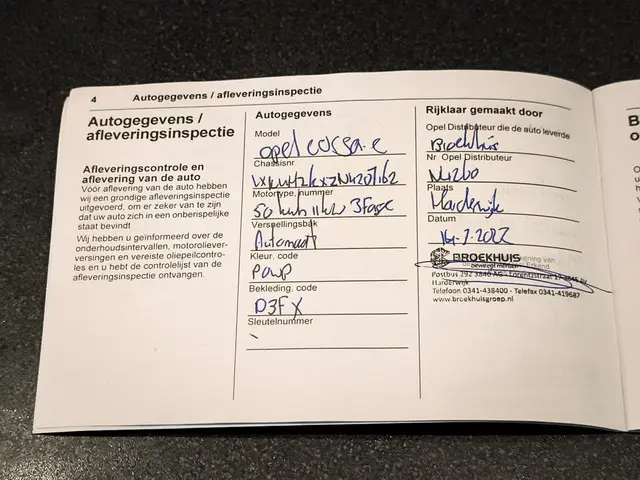 4 Autogegevens / afleveringsinspectie
Autogegevens /
afleveringsinspectie
Afleveringscontrole en
aflevering van de auto
Vóór aflevering van de auto hebben
wij een grondige afleveringsinspectie
uitgevoerd, om er zeker van te zijn
dat uw auto zich in een onberispelijke
staat bevindt
Wij hebben u geïnformeerd over de
onderhoudsintervallen, motoroliever-
versingen en vereiste oliepeilcontro-
les en u hebt de controlelijst van de
afleveringsinspectie ontvangen.
Autogegevens
Model
opel corsa-e
Chassisnr
Motortype, nummer
50 kwh 11kw 3Fase
Versnellingsbak
Automaat
Kleur, code
Bekleding, code
D3FX
Sleutelnummer
Rijklaar gemaakt door
Opel Distributeur die de auto leverde
Broekhuis
Nr Opel Distributeur
Plaats
Harderwijk
Datum
14-7-2022
BROEKHUIS
beweegt mensen
Postbus 292 3840 AG
Harderwijk
Telefoon 0341-438400 - Telefax 0341-419687
www.broekhuisgroep.nl
B
o